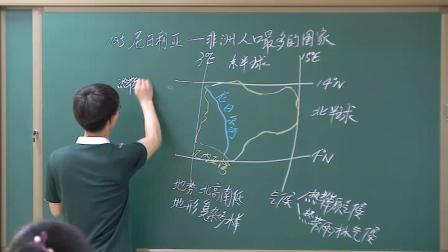 尼日利亚 — 非洲人口最多的国家
3°E 东半球 15°E
热带
14°N
尼日尔河
北半球
几内亚湾
4°N
地势 北高南低
地形复杂多样
气候
热带草原气候
热带雨林气候